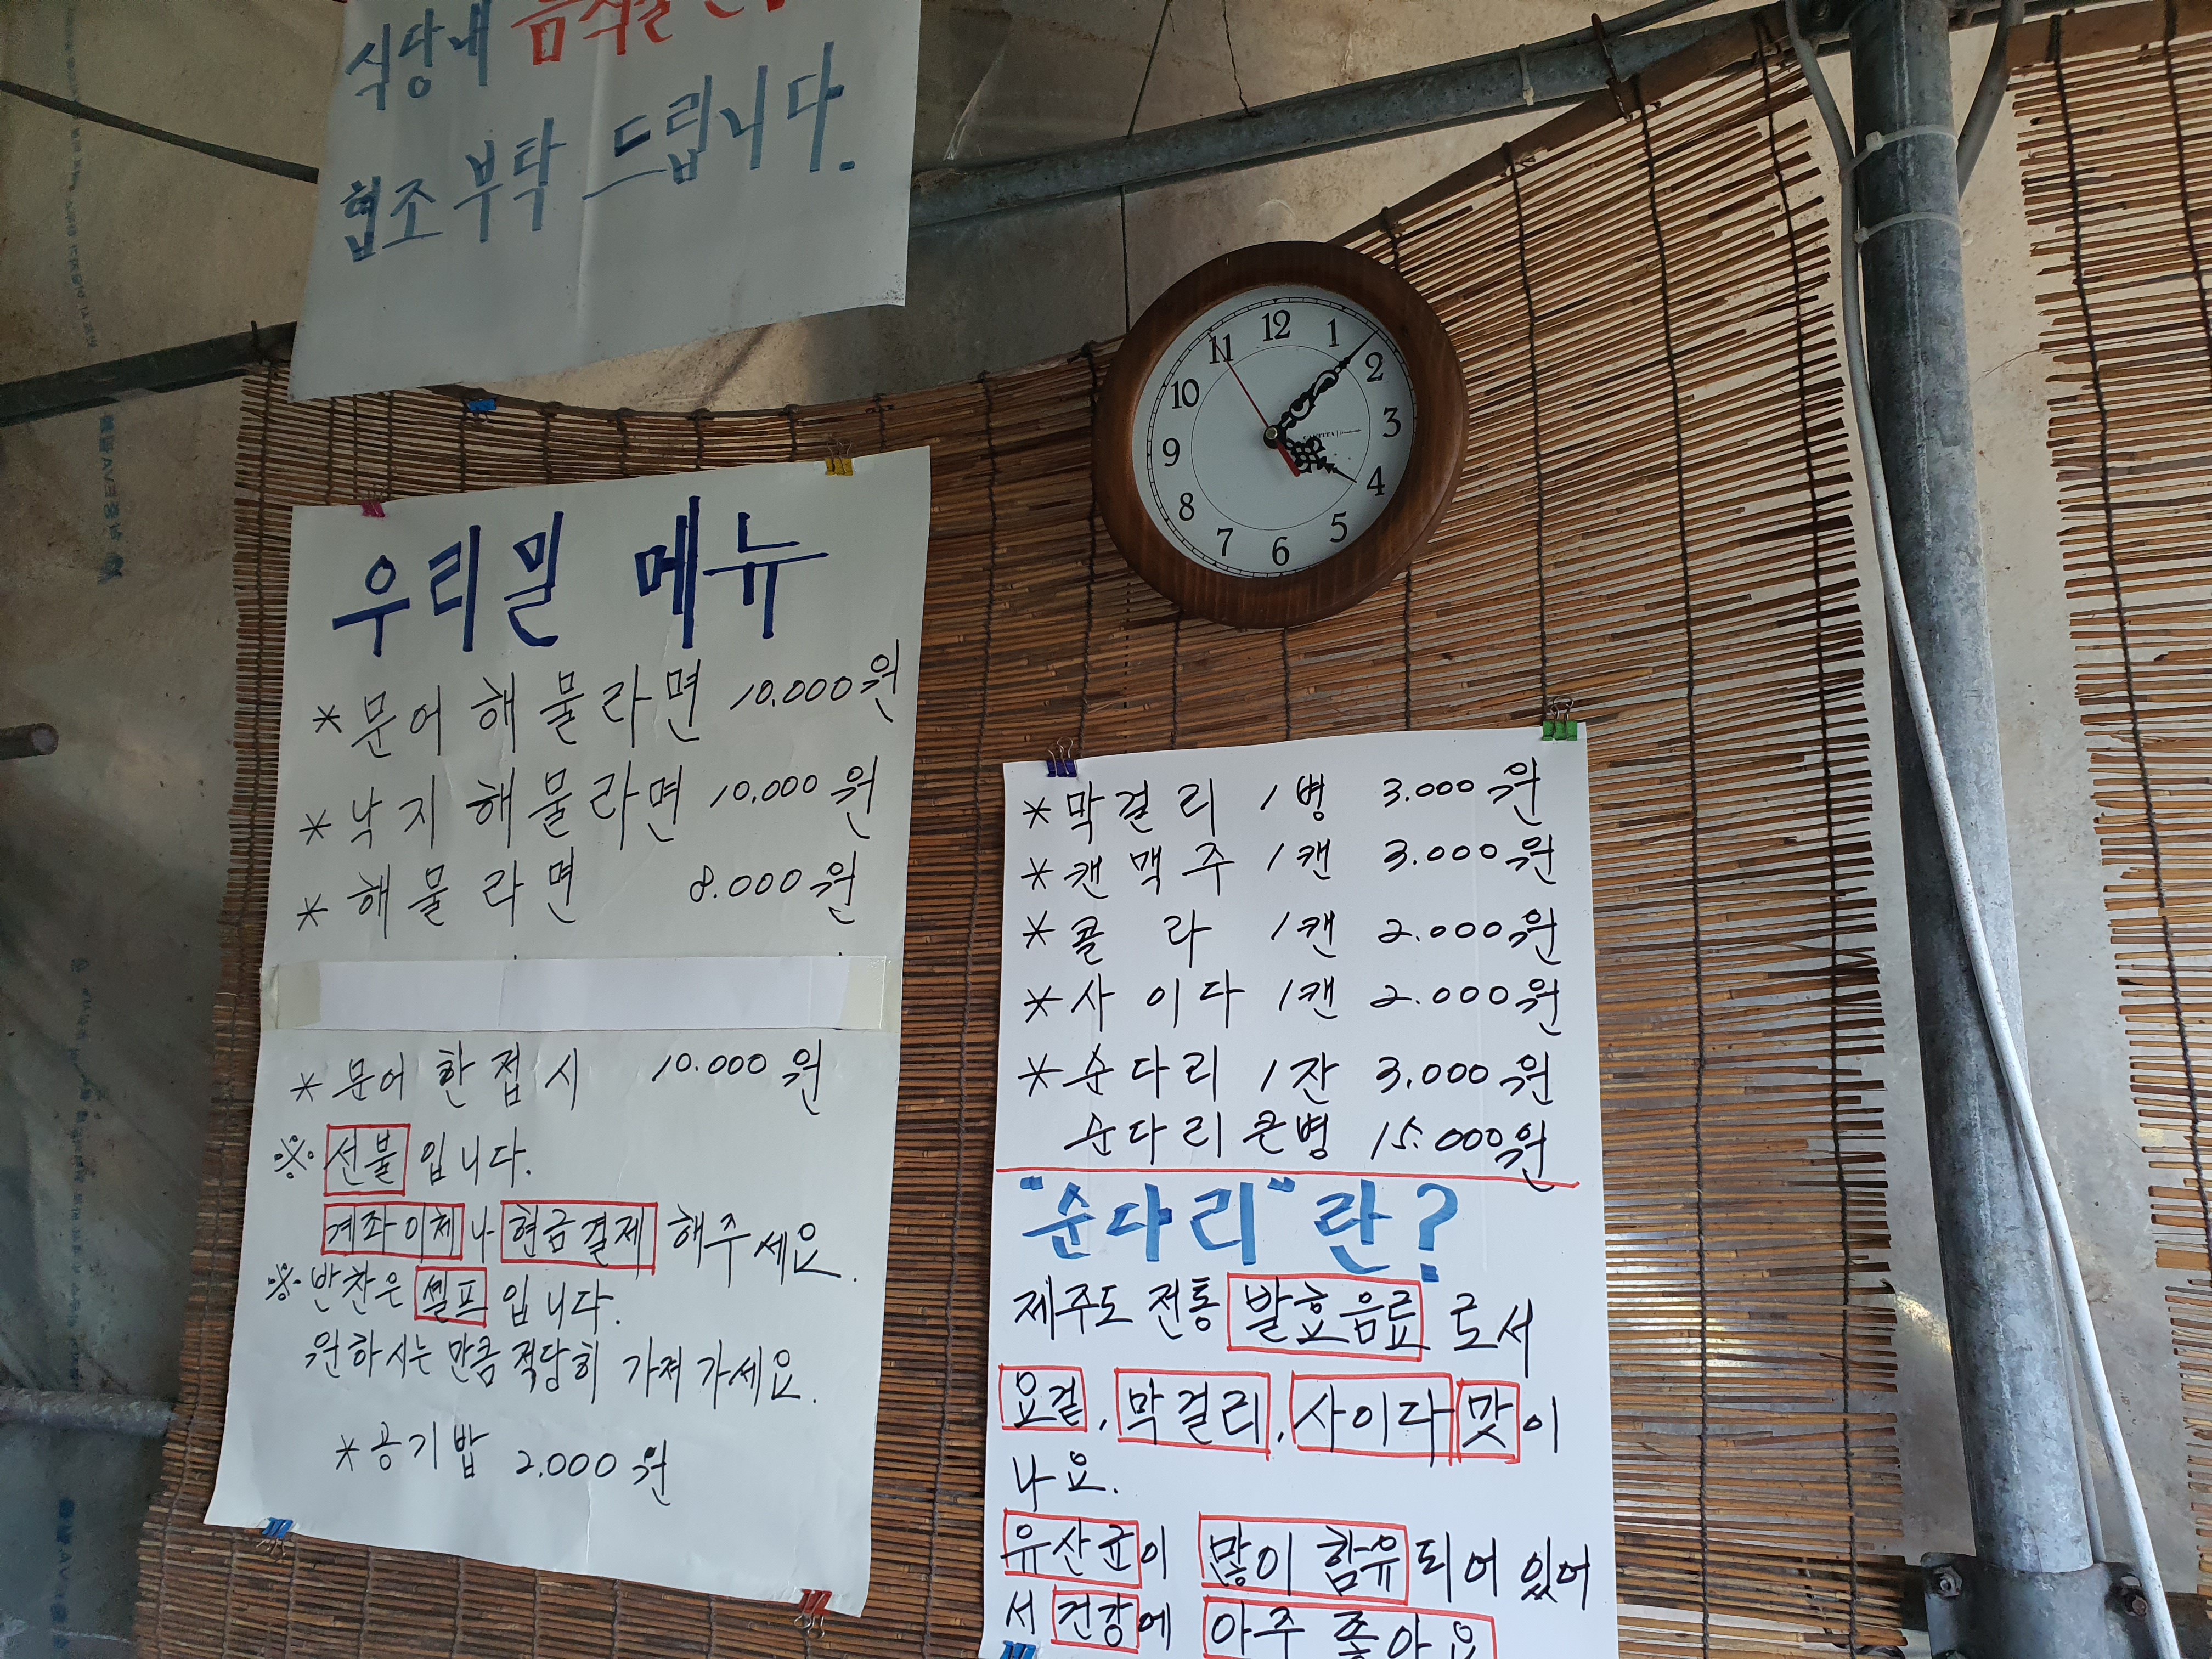 식당내
협조 부탁 드립니다.
12
1
2
3
4
5
6
7
8
9
10
11
우리밀 메뉴
* 문어 해물라면 10.000원
* 낙지 해물라면 10.000원
* 해물라면 8.000원
* 문어 한접시 10.000원
※ 선불 입니다.
계좌이체나 현금결제 해주세요.
※ 반찬은 셀프 입니다.
원하시는 만큼 적당히 가져가세요.
* 공기밥 2.000원
* 막걸리 1병 3.000원
* 캔맥주 1캔 3.000원
* 콜라 1캔 2.000원
* 사이다 1캔 2.000원
* 순다리 1잔 3.000원
순다리 큰병 15.000원
"순다리"란?
제주도 전통 발효음료로서
요겉, 막걸리, 사이다 맛이
나요.
유산균이 많이 함유되어 있어
서 건강에 아주 좋아요